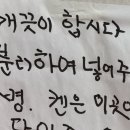 깨끗이 합시다
분리하여 넣어주
병. 켄은 이곳